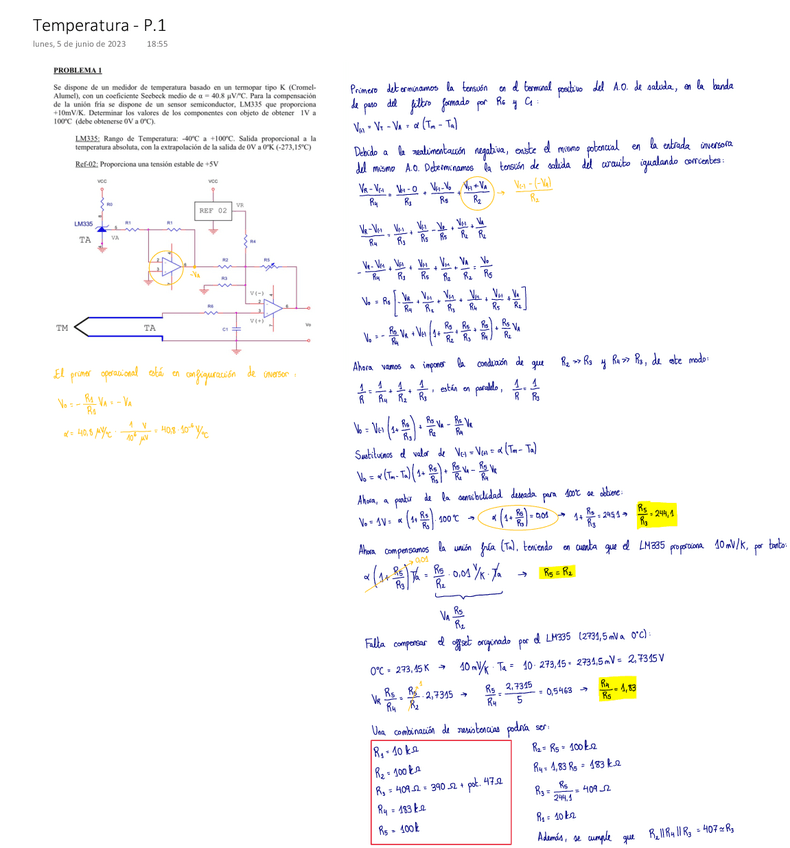 Temperatura - P.1
lunes, 5 de junio de 2023 18:55
PROBLEMA 1
Se dispone de un medidor de temperatura basado en un termopar tipo K (Cromel-
Alumel), con un coeficiente Seebeck medio de α = 40.8 μV/ºC. Para la compensación
de la unión fría se dispone de un sensor semiconductor, LM335 que proporciona
+10mV/K. Determinar los valores de los componentes con objeto de obtener 1V a
100ºC (debe obtenerse 0V a 0ºC).
LM335: Rango de Temperatura: -40ºC a +100ºC. Salida proporcional a la
temperatura absoluta, con la extrapolación de la salida de 0V a 0ºK (-273,15ºC)
Ref-02: Proporciona una tensión estable de +5V
VCC
VCC
R0
REF 02
VR
LM335
R1
R1
TA
VA
R4
-VA
R2
R5
R3
V(-)
R6
V(+)
Vo
TM
TA
C1
El primer operacional está en configuración de inversor:
Vo = - R1/R1 VA = - VA
α = 40,8 μV/ºC · 1/10⁶ V/μV = 40,8·10⁻⁶ V/ºC
Primero determinamos la tensión en el terminal positivo del A.O. de salida, en la banda
de paso del filtro formado por R6 y C1:
V(+) = VT - VA = α (Tm - Ta)
Debido a la realimentación negativa, existe el mismo potencial en la entrada inversora
del mismo A.O. Determinamos la tensión de salida del circuito igualando corrientes:
(VR - V(-))/R4 = (V(-) - 0)/R3 + (V(-) - Vo)/R5 + (V(-) + VA)/R2 → (V(-) - (-VA))/R2
(VR - V(-))/R4 = V(-)/R3 + V(-)/R5 - Vo/R5 + V(-)/R2 + VA/R2
- (VR - V(-))/R4 + V(-)/R3 + V(-)/R5 + V(-)/R2 + VA/R2 = Vo/R5
Vo = R5 [ - VR/R4 + V(-)/R2 + V(-)/R3 + V(-)/R4 + V(-)/R5 + VA/R2 ]
Vo = - R5/R4 VR + V(-) (1 + R5/R2 + R5/R3 + R5/R4) + R5/R2 VA
Ahora vamos a imponer la condición de que R2 >> R3 y R4 >> R3, de este modo:
1/R = 1/R4 + 1/R2 + 1/R3, están en paralelo, 1/R = 1/R3
Vo = V(-) (1 + R5/R3) + R5/R2 VA - R5/R4 VR
Sustituimos el valor de V(-) = V(+) = α (Tm - Ta)
Vo = α (Tm - Ta) (1 + R5/R3) + R5/R2 VA - R5/R4 VR
Ahora, a partir de la sensibilidad deseada para 100ºC se obtiene:
Vo = 1V = α (1 + R5/R3) · 100ºC → α (1 + R5/R3) = 0,01 → 1 + R5/R3 = 245,1 → R5/R3 = 244,1
Ahora compensamos la unión fría (Ta), teniendo en cuenta que el LM335 proporciona 10mV/K, por tanto:
0,01
α (1 + R5/R3) Ta = R5/R2 · 0,01 V/K · Ta → R5 = R2
VA R5/R2
Falta compensar el offset originado por el LM335 (2731,5mV a 0ºC):
0ºC = 273,15K → 10 mV/K · Ta = 10 · 273,15 = 2731.5mV = 2,7315V
VR R5/R4 = R5/R2 · 2,7315 → R5/R4 = 2,7315/5 = 0,5463 → R4/R5 = 1,83
Una combinación de resistencias podría ser:
R1 = 10 kΩ
R2 = 100 kΩ
R3 = 409 Ω = 390 Ω + pot. 47Ω
R4 = 183 kΩ
R5 = 100k
R2 = R5 = 100 kΩ
R4 = 1,83 R5 = 183 kΩ
R3 = R5/244,1 = 409 Ω
R1 = 10kΩ
Además, se cumple que R2||R4||R3 = 407 ≃ R3